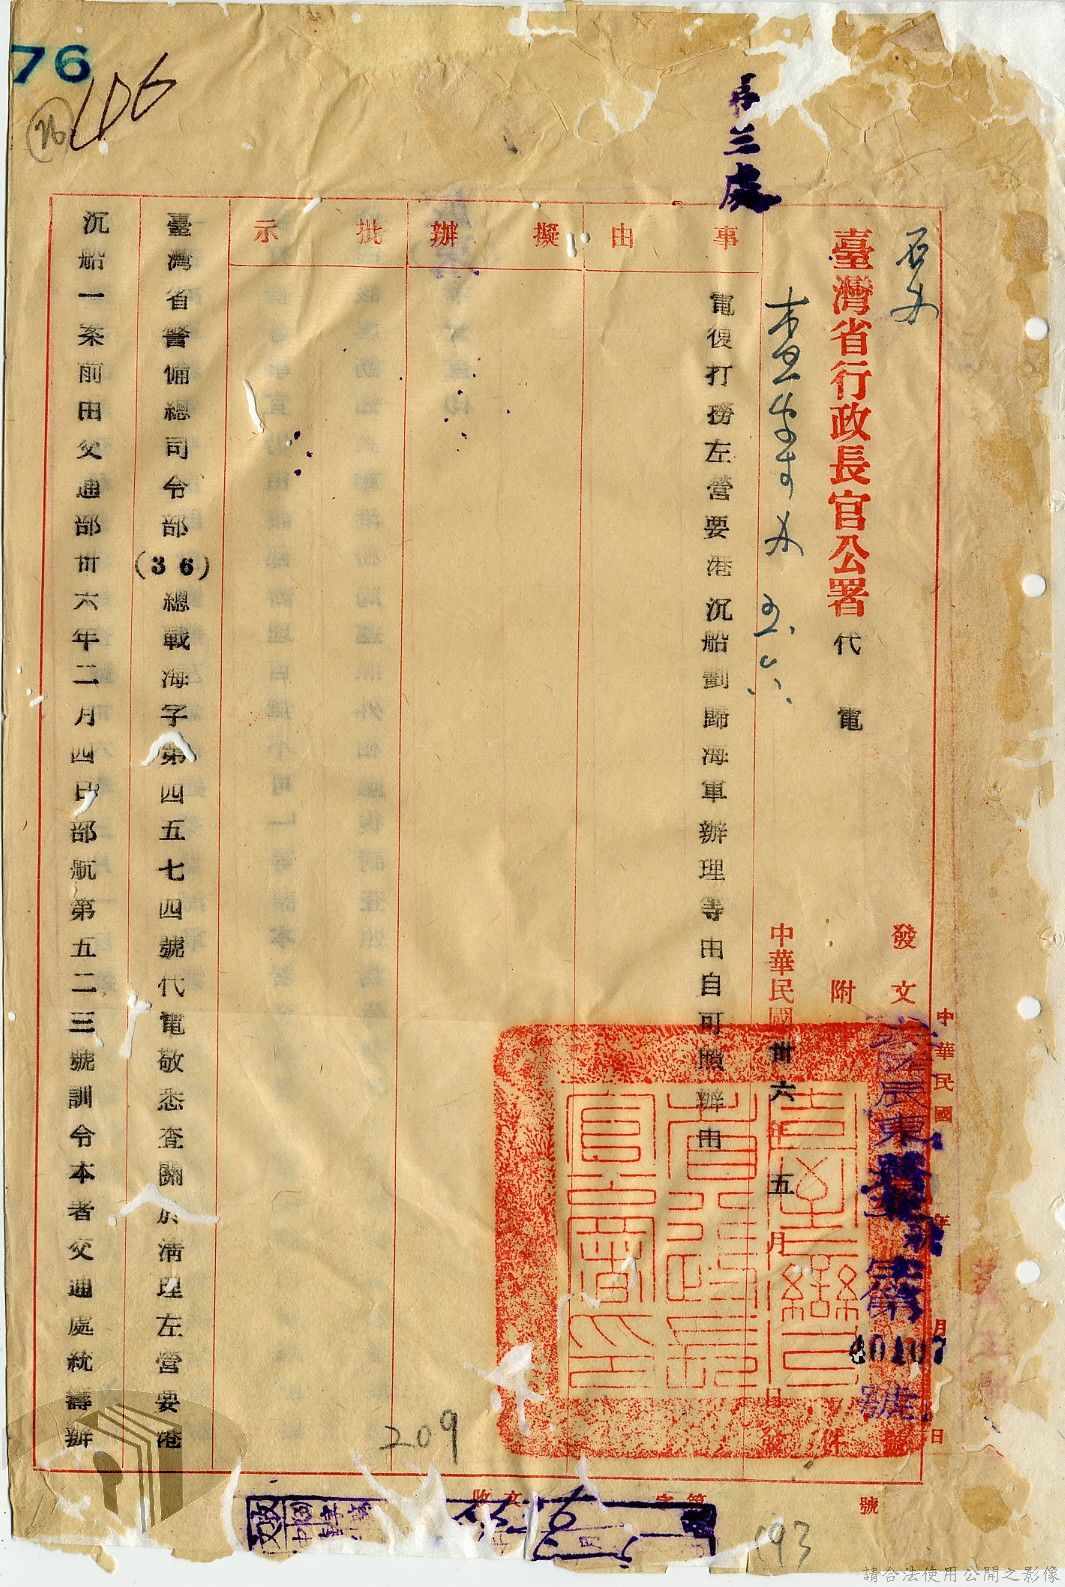 76
106
26
第三處
臺灣省行政長官公署代電
發文
附
件
號
中華民國 年 月 日
第
40107
號
中華民國卅六年五月 日
事由
擬辦
批示
電復打撈左營要港沉船劃歸海軍辦理等由自可照辦由
臺灣省警備總司令部(36)總戰海字第四五七四號代電敬悉查關於清理左營要港
沉船一案前由交通部卅六年二月四日部航第五二三號訓令本署交通處統籌辦
209
收文 字第 號
193
請合法使用公開之影像